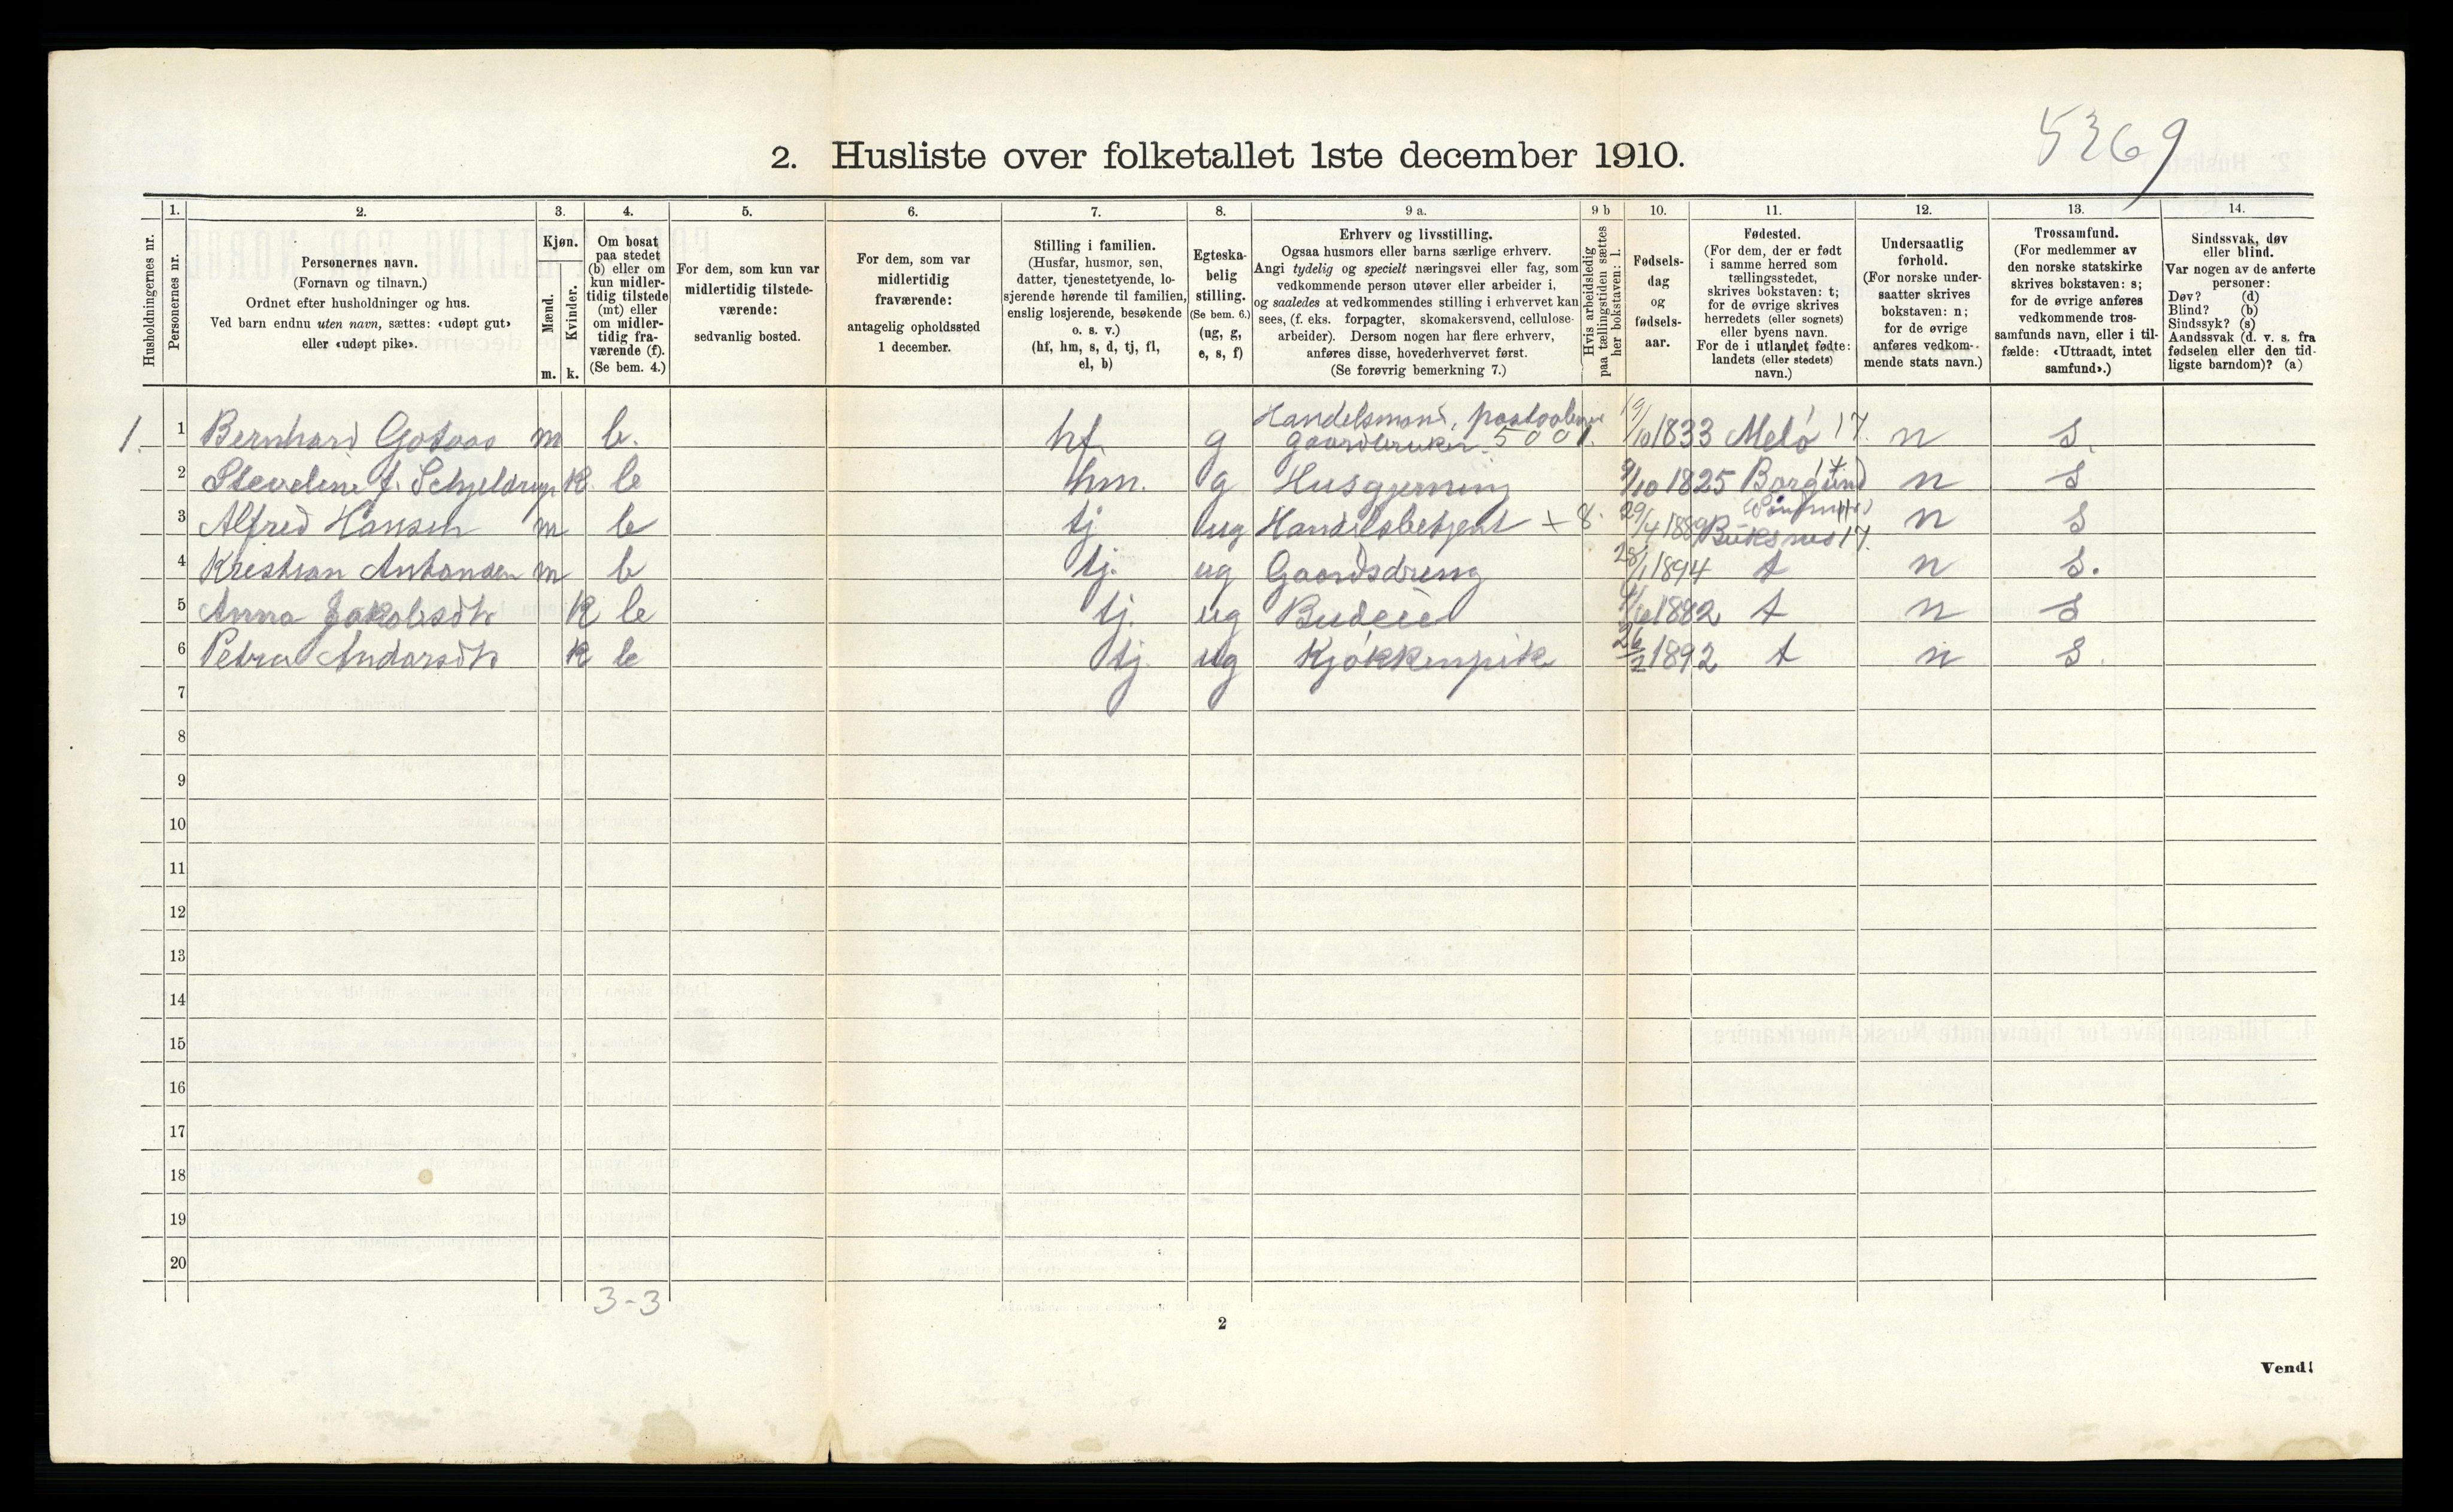 5369
2. Husliste over folketallet 1ste december 1910.
Husholdningernes nr.
1.
Personernes nr.
2.
Personernes navn.
(Fornavn og tilnavn.)
Ordnet efter husholdninger og hus.
Ved barn endnu uten navn, sættes: «udøpt gut»
eller «udøpt pike».
3.
Kjøn.
Mænd.
Kvinder.
m. k.
4.
Om bosat
paa stedet
(b) eller om
kun midler-
tidig tilstede
(mt) eller
om midler-
tidig fra-
værende (f).
(Se bem. 4.)
5.
For dem, som kun var
midlertidig tilstede-
værende:
sedvanlig bosted.
6.
For dem, som var
midlertidig
fraværende:
antagelig opholdssted
1 december.
7.
Stilling i familien.
(Husfar, husmor, søn,
datter, tjenestetyende, lo-
sjerende hørende til familien,
enslig losjerende, besøkende
o. s. v.)
(hf, hm, s, d, tj, fl,
el, b)
8.
Egteska-
belig
stilling.
(Se bem. 6.)
(ug, g,
e, s, f)
9 a.
Erhverv og livsstilling.
Ogsaa husmors eller barns særlige erhverv.
Angi tydelig og specielt næringsvei eller fag, som
vedkommende person utøver eller arbeider i,
og saaledes at vedkommendes stilling i erhvervet kan
sees, (f. eks. forpagter, skomakersvend, cellulose-
arbeider). Dersom nogen har flere erhverv,
anføres disse, hovederhvervet først.
(Se forøvrig bemerkning 7.)
9 b
Hvis arbeidsledig
paa tællingstiden sættes
her bokstaven: l.
10.
Fødsels-
dag
og
fødsels-
aar.
11.
Fødested.
(For dem, der er født
i samme herred som
tællingsstedet,
skrives bokstaven: t;
for de øvrige skrives
herredets (eller sognets)
eller byens navn.
For de i utlandet fødte:
landets (eller stedets)
navn.)
12.
Undersaatlig
forhold.
(For norske under-
saatter skrives
bokstaven: n;
for de øvrige
anføres vedkom-
mende stats navn.)
13.
Trossamfund.
(For medlemmer av
den norske statskirke
skrives bokstaven: s;
for de øvrige anføres
vedkommende tros-
samfunds navn, eller i til-
fælde: «Uttraadt, intet
samfund».)
14.
Sindssvak, døv
eller blind.
Var nogen av de anførte
personer:
Døv? (d)
Blind? (b)
Sindssyk? (s)
Aandssvak (d. v. s. fra
fødselen eller den tid-
ligste barndom)? (a)
1. 1 Bernhard Gotaas m b. hf. g Handelsmand, postaabner
gaardbruker. 500 19/10 1833 Melø 17. n s.
2 f. Schjeldrup k b hm. g Husgjerning 9/10 1825 Borgund n s
3 Alfred Hansen m b tj ug Handelsbetjent + 8. 29/4 1889 Buksnes 17. n s
4 Kristian Antonsen m b tj. ug Gaardsdreng 28/1 1894 t n s.
5 Anna Jakobsdtr k b tj. ug Budeie 1882 t n s
6 Petra Andersdtr k b tj ug Kjøkkenpike 26/2 1892 t n s.
7
8
9
10
11
12
13
14
15
16
17
18
19
20
3-3
2
Vend!